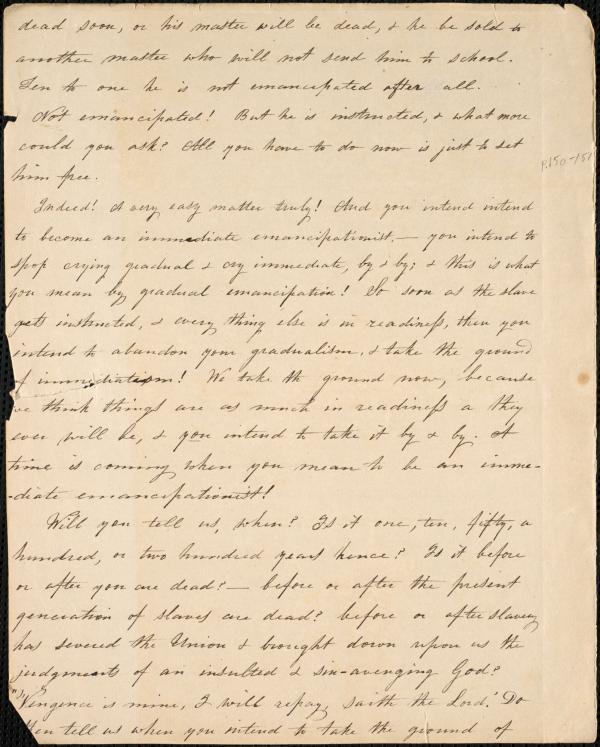 dead soon, or his master will be dead, & he be sold to
another master who will not send him to school.
Ten to one he is not emancipated after all.
Not emancipated! But he is instructed, & what more
could you ask? All you have to do now is just to set
him free.
P. 150-151
Indeed! A very easy matter truly! And you intend intend
to become an immediate emancipationist, — you intend to
spop crying gradual & cry immediate, by & by; & this is what
you mean by gradual emancipation! So soon as the slave
gets instructed, & every thing else is in readiness, then you
intend to abandon your gradualism, & take the ground
of immediatism! We take th ground now, because
we think things are as much in readiness a they
ever will be, & you intend to take it by & by. A
time is coming when you mean to be an imme-
-diate emancipationist!
Will you tell us, when? Is it one, ten, fifty, a
hundred, or two hundred years hence? Is it before
or after you are dead? — before or after the present
generation of slaves are dead? before or after slavery
has severed the Union & brought down upon us the
judgments of an insulted & sin-avenging God?
"Vengence is mine, I will repay, saith the Lord." Do
then tell us when you intend to take the ground of